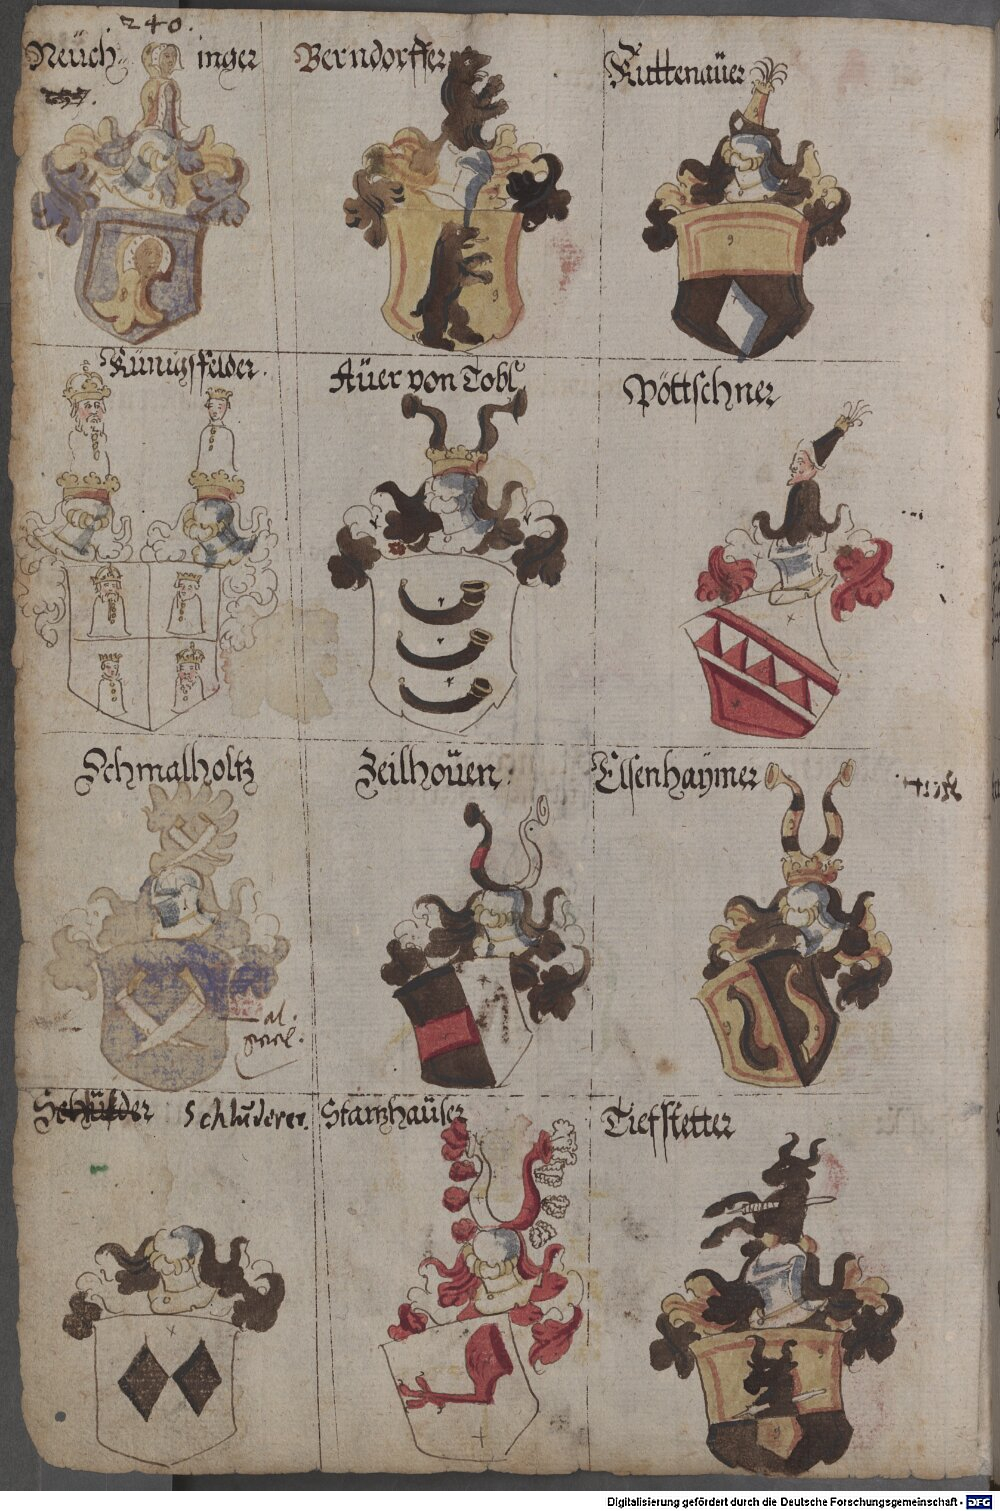 240.
Neüch inger
Berndorffer
Kuttenaüer
Künigsfelder.
Aüer von Tobl
Pöttschner
Schmalholtz
Zeilhoüen:
Elsenhaymer
al.
geel.
Schluderer.
Starzhaüser
Tiefstetter
Digitalisierung gefördert durch die Deutsche Forschungsgemeinschaft - DFG